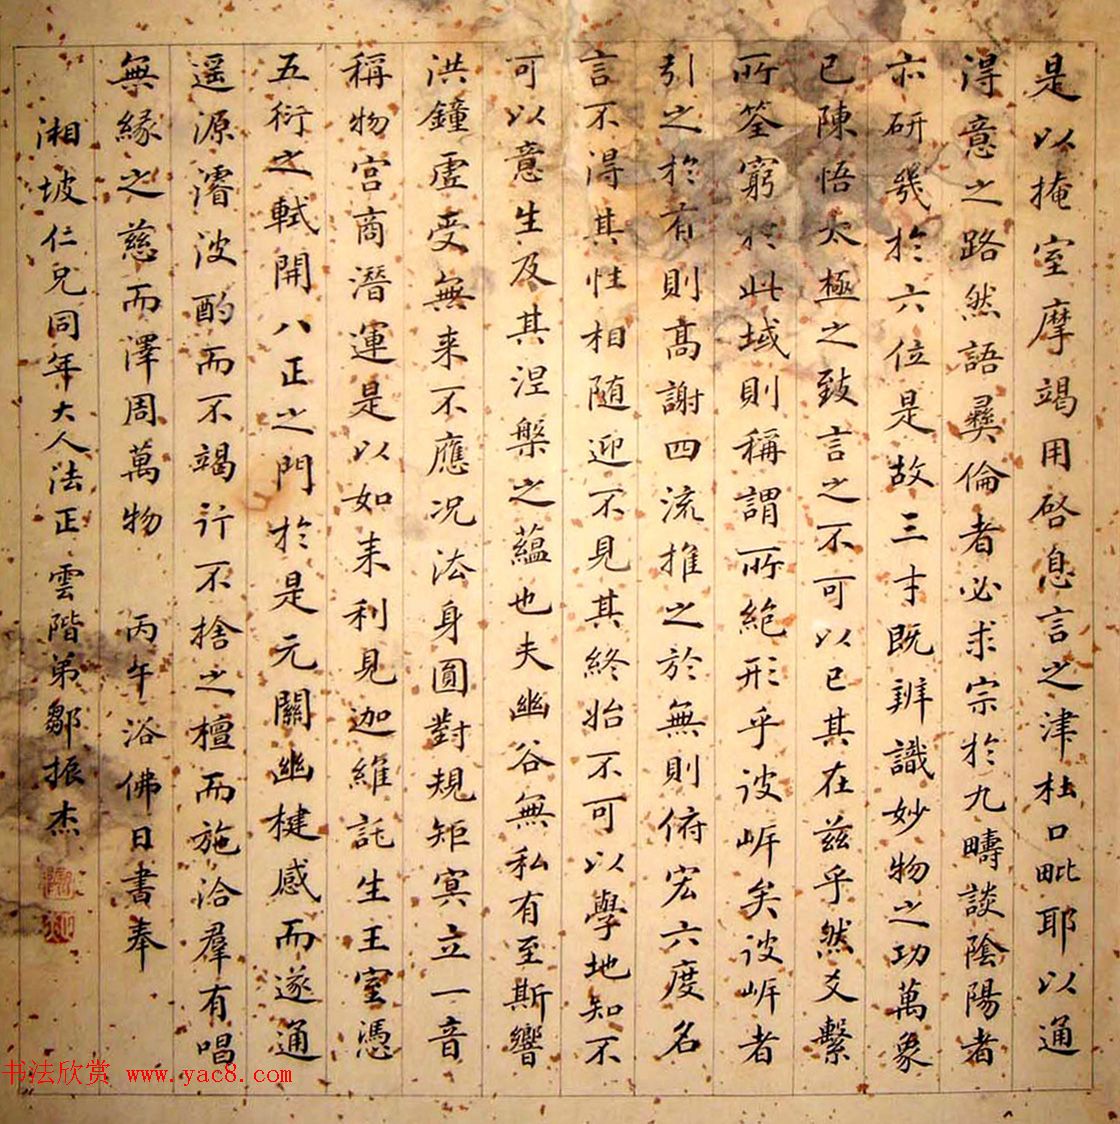 是以掩室摩竭用啓息言之津杜口毗耶以通
得意之路然語彞倫者必求宗於九疇談陰陽者
亦研幾於六位是故三才既辨識妙物之功萬象
已陳悟太極之致言之不可以已其在茲乎然爻繫
所筌窮於此域則稱謂所絶形乎彼岸矣彼岸者
引之於有則高謝四流推之於無則俯宏六度名
言不得其性相随迎不見其終始不可以學地知不
可以意生及其涅槃之蘊也夫幽谷無私有至斯響
洪鐘虚受無来不應况法身圓對規矩冥立一音
稱物宫商潛運是以如来利見迦維託生王室憑
五衍之軾開八正之門於是元關幽楗感而遂通
遥源濬波酌而不竭行不捨之檀而施洽羣有唱
無緣之慈而澤周萬物 丙午浴佛日書奉
湘坡仁兄同年大人法正 雲階弟鄒振杰
书法欣赏 www.yac8.com